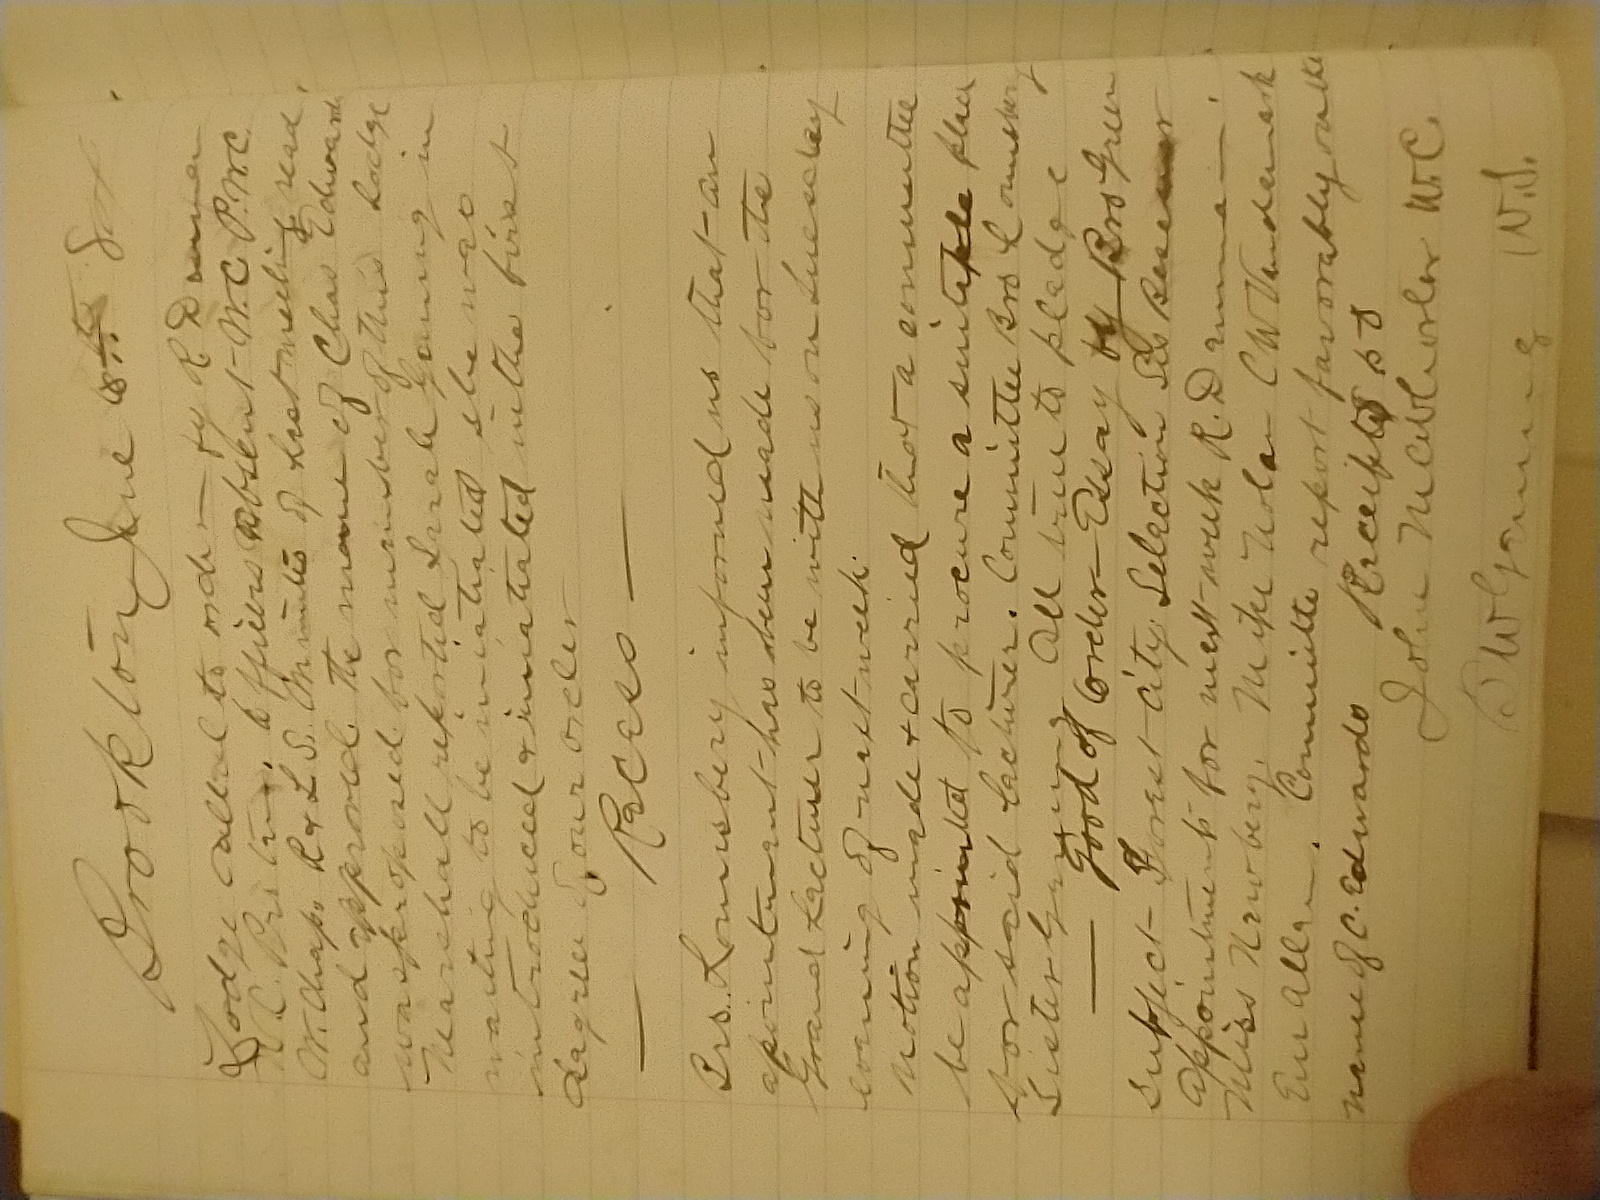 Brooklyn June
Lodge called to order by R. D
W.C. Pro tem. officers absent - W.C. P.W.C.
W. Chap, R & L S. Minutes of last meeting read
and approved. The name of Chas Edward
was proposed for membership of this Lodge
Marshall reported Sarah Ganing in
waiting to be iniatiated she was
introduced & iniatiated in the first
degree of our order
— Recess —
Bro. Lounsbery informed us that an
apointment has been made for the
Grand Lecturer to be with us on Tuesday
evening of next week.
Motion made & carried that a committee
be appointed to procure a suitable place
for said Lecturer. Committee Bro Lounsbery
Sister All true to pledge
— Good of Order — Essay by Bro Green
Subject Forest City, Selection
appointments for next week R. D
Miss Newbery, Mike Nolan C W Vandemark
Em Allen. Committe report favorably on the
name of C. Edwards Receipts
John W.C.
W Ganung W.S.